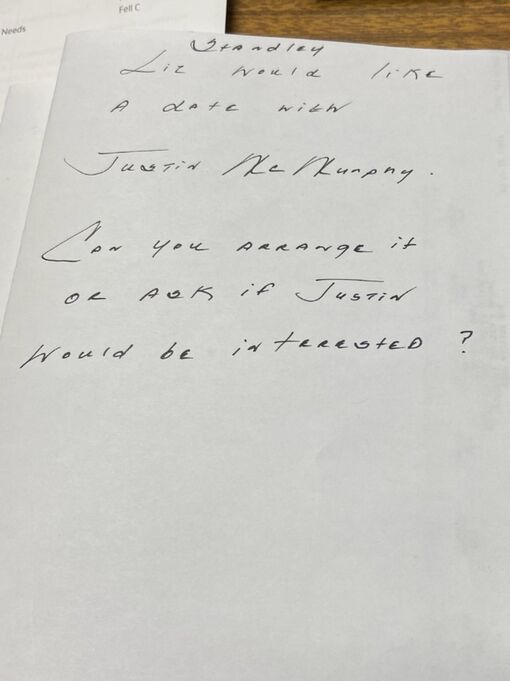 Fell C
Needs
Standley
Liz would like
A date with
Justin McMurphy.
Can you arrange it
or ask if Justin
Would be interested ?